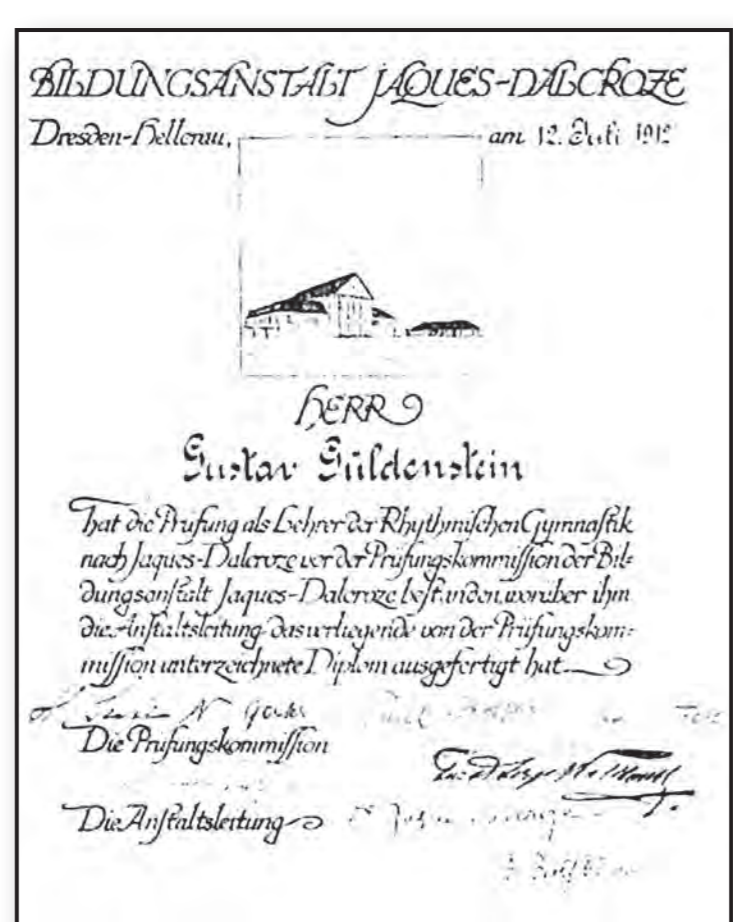 BILDUNGSANSTALT JAQUES-DALCROZE
Dresden-Hellerau, am 12. Juli 1912
HERR
Gustav Güldenstein
hat die Prüfung als Lehrer der Rhythmiſchen Gymnaſtik
nach Jaques-Dalcroze vor der Prüfungskommiſſion der Bil=
dungsanſtalt Jaques-Dalcroze beſtanden, worüber ihm
die Anſtaltsleitung das vorliegende von der Prüfungskom=
miſſion unterzeichnete Diplom ausgefertigt hat
Die Prüfungskommiſſion
Die Anſtaltsleitung